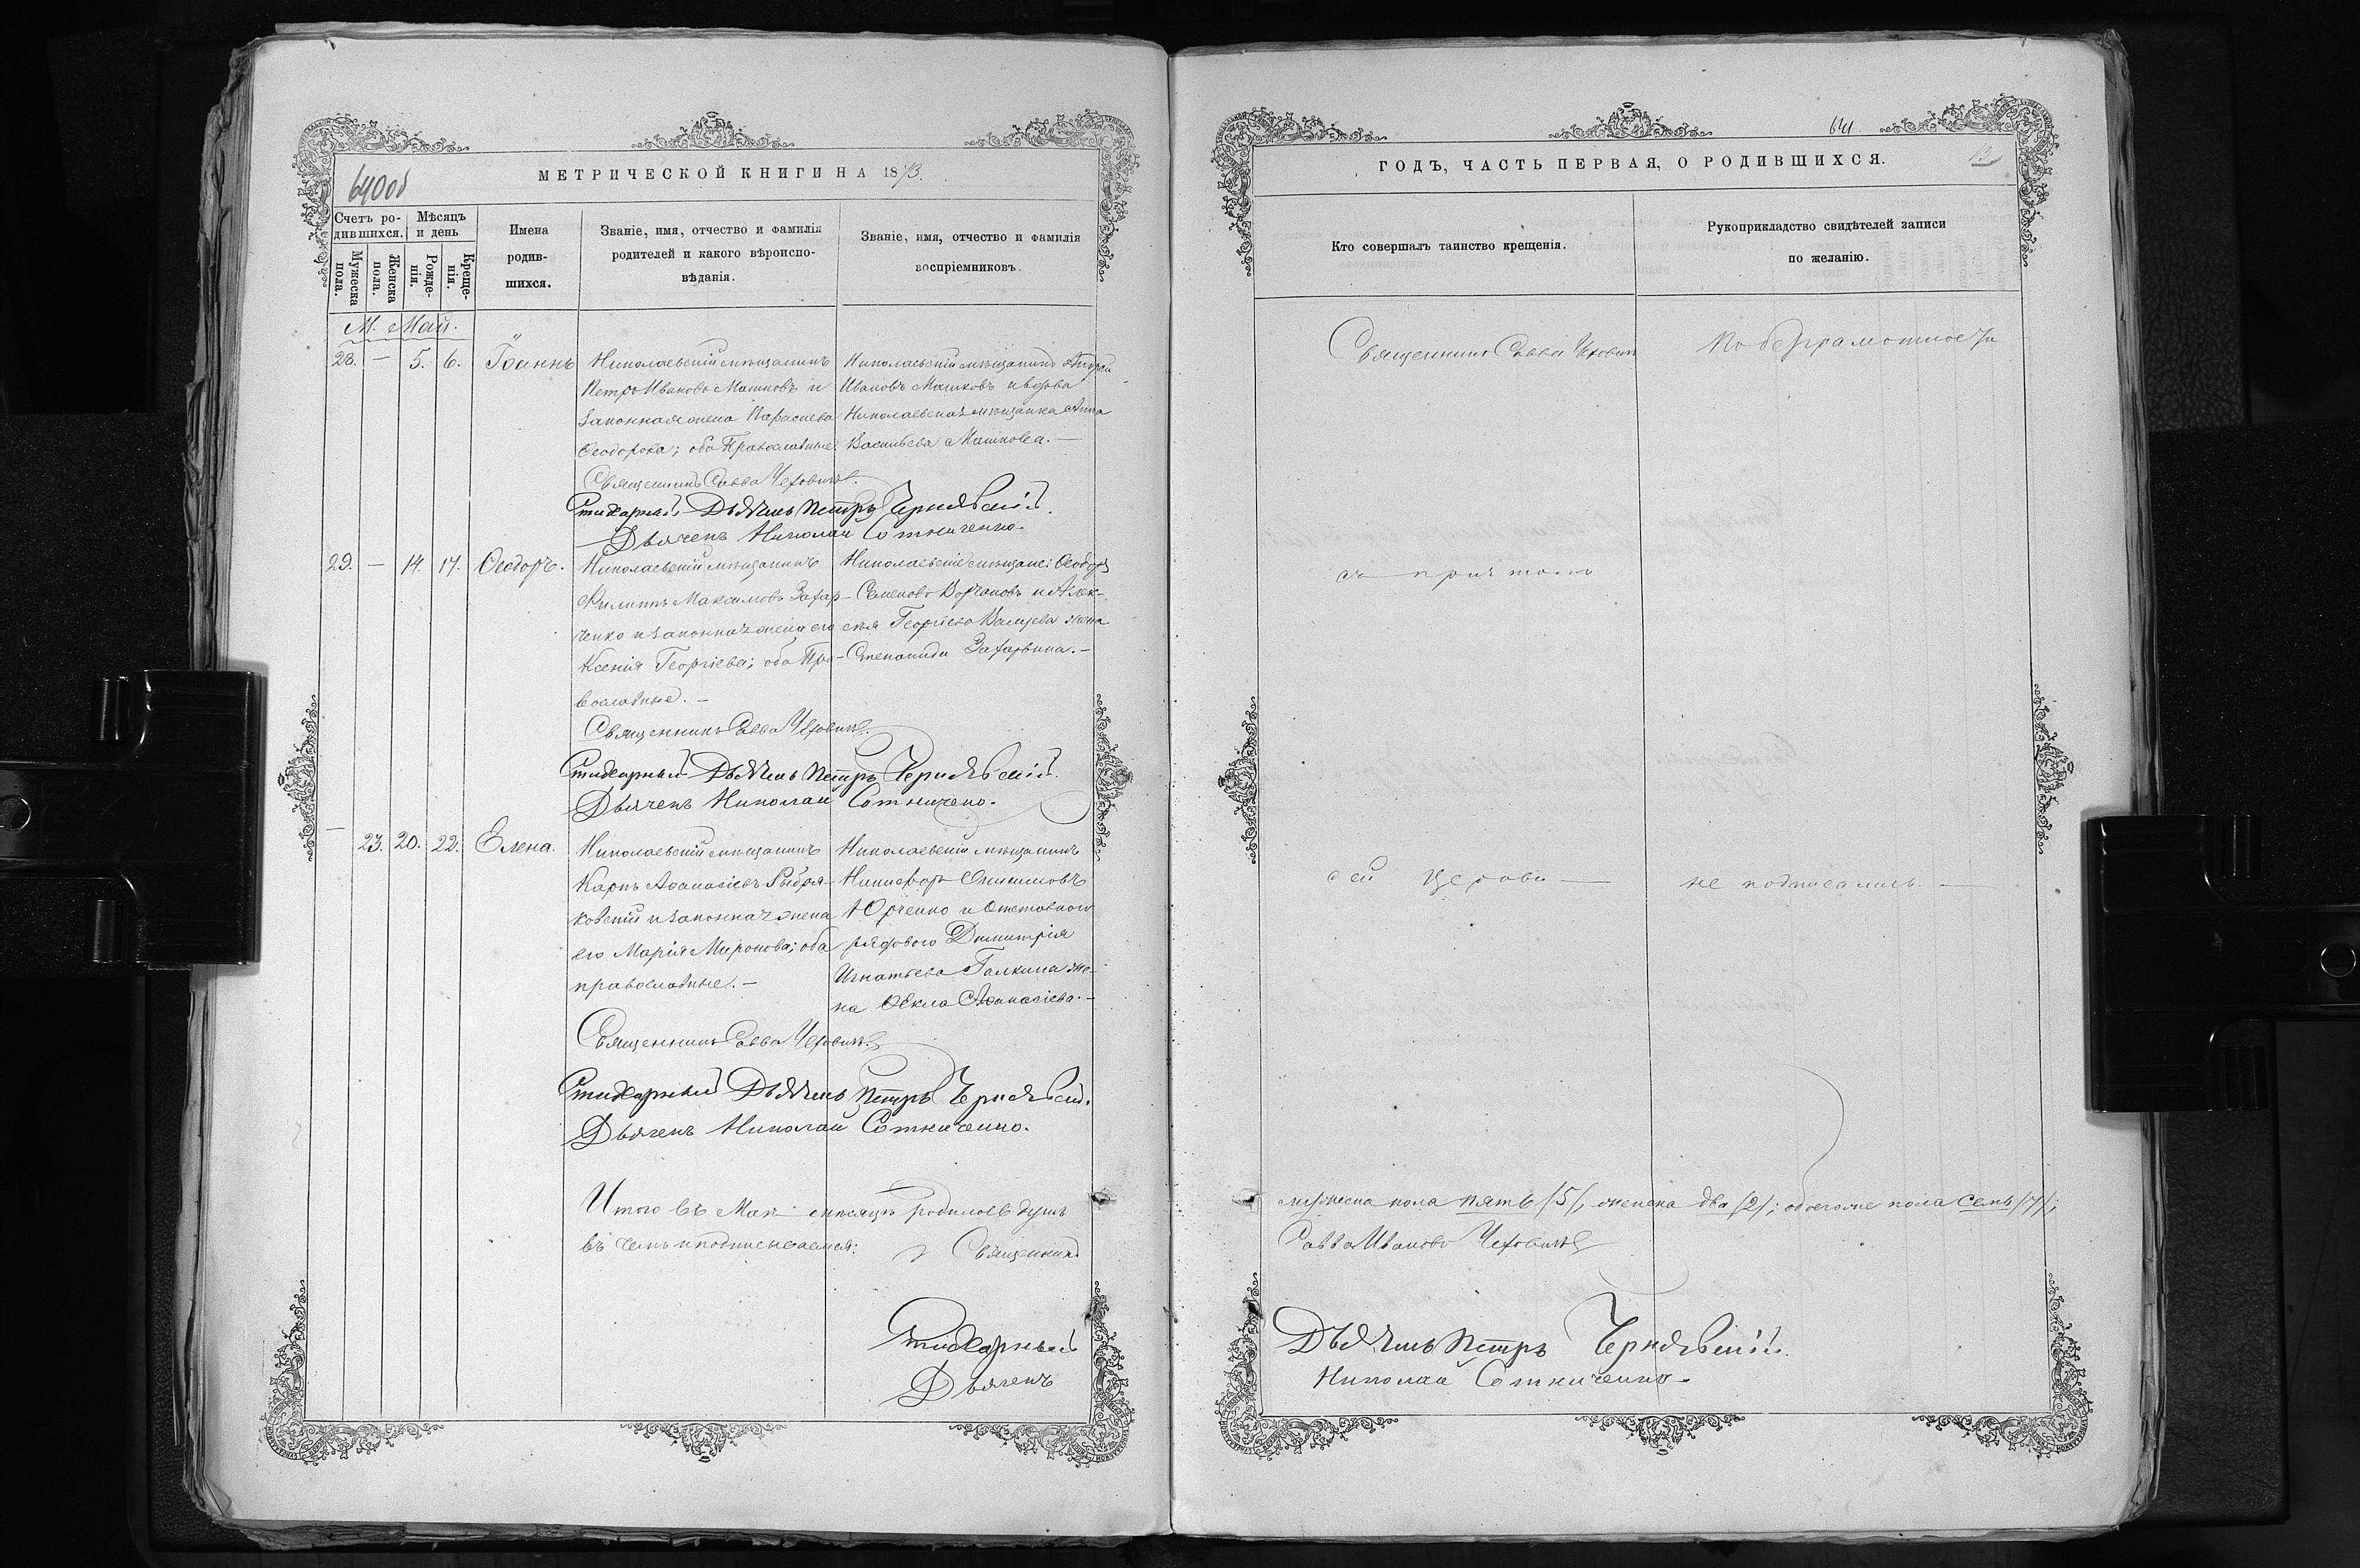 640об
МЕТРИЧЕСКОЙ КНИГИ НА 1873.
Счетъ ро-
дившихся.
Мѣсяцъ
и день
Мужеска
пола.
Женска
пола.
Рожде-
нія.
Креще-
нія.
Имена
родив-
шихся.
Званіе, имя, отчество и фамилія
родителей и какого вѣроиспо-
вѣданія.
Званіе, имя, отчество и фамилія
воспріемниковъ.
М. Май.
28. — 5. 6. Іоаннъ
Николаевскій мѣщанинъ
Петръ Ивановъ Машковъ и
законная жена Параскева
Ѳеодорова; оба Православные.
Николаевскій мѣщанинъ Андрей
Ивановъ Машковъ и вдова
Николаевская мѣщанка Анна
Васильева Машкова. —
Священникъ Савва Чехович
Стихарный Дьячекъ Петръ Чернявскій.
Дьячекъ Николай Сотниченко.
29. — 14. 17. Ѳеодоръ.
Николаевскій мѣщанинъ
Филиппъ Максимовъ Захар-
ченко и законная жена его
Ксенія Георгіева; оба Пра-
вославные. —
Николаевскіе мѣщане: Ѳеодоръ
Семеновъ и Алек-
сѣя Георгіева жена
Степанида —
Священникъ Савва Чехович
Стихарный Дьячекъ Петръ Чернявскій.
Дьячекъ Николай Сотниченко.
— 23. 20. 22. Елена.
Николаевскій мѣщанинъ
Карпъ Аѳанасіевъ
и законная жена
его Марія Миронова; оба
православные. —
Николаевскій мѣщанинъ
Никифоръ Онисимовъ
Юрченко и отставного
рядового Димитрія
Игнатьева Галкина же-
на Ѳекла Аѳанасіева. —
Священникъ Савва Чехович
Стихарный Дьячекъ Петръ Чернявскій.
Дьячекъ Николай Сотниченко.
Итого въ Маѣ мѣсяцѣ родилось душъ
въ чемъ и подписываемся:
Священникъ
Стихарный
Дьячекъ
641
ГОДЪ, ЧАСТЬ ПЕРВАЯ, О РОДИВШИХСЯ.
Кто совершалъ таинство крещенія.
Рукоприкладство свидѣтелей записи
по желанію.
Священникъ Савва Чехович
По безграмотности
съ причтомъ
сей церкви —
не подписались. —
мужеска пола пять /5/, женска два /2/; обоего же пола семь /7/;
Савва Ивановъ Чехович
Дьячекъ Петръ Чернявскій.
Николай Сотниченко.